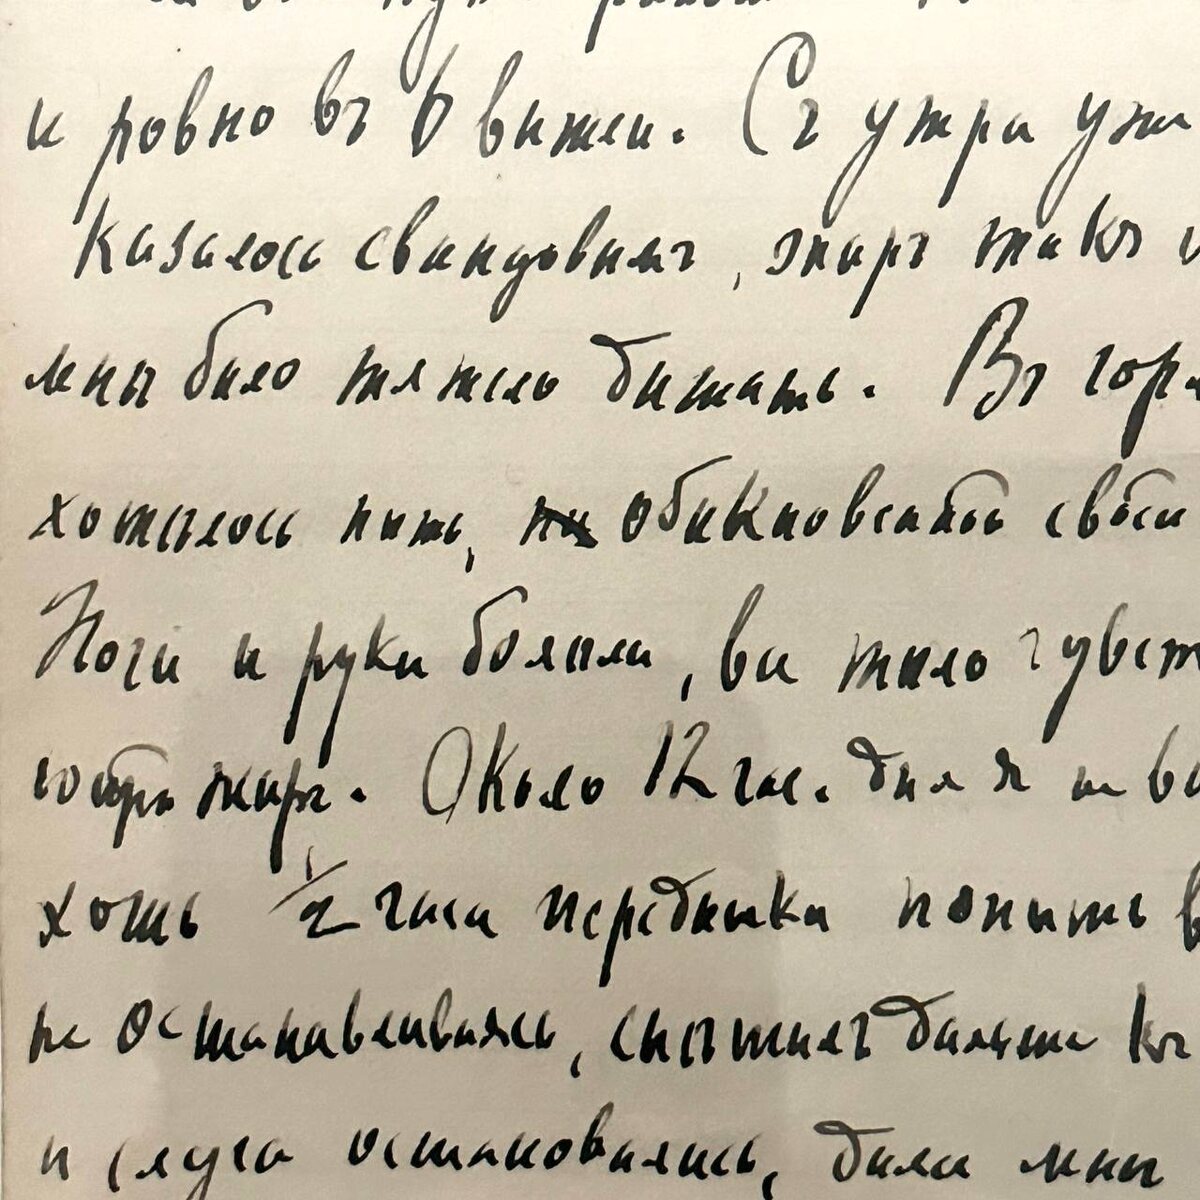 и ровно въ 6 вышли. Съ утра уже
казалось свинцовымъ, жаръ такъ
мнѣ было тяжело дышать. Въ горл
хотѣлось пить, обыкновенной своей
Ноги и руки болѣли, все тѣло чувст
жаръ. Около 12 час. дня я не вы
хоть 1/2 часа передышки попить в
не останавливаясь, спѣшилъ дальше къ
и слуга остановились, дали мнѣ